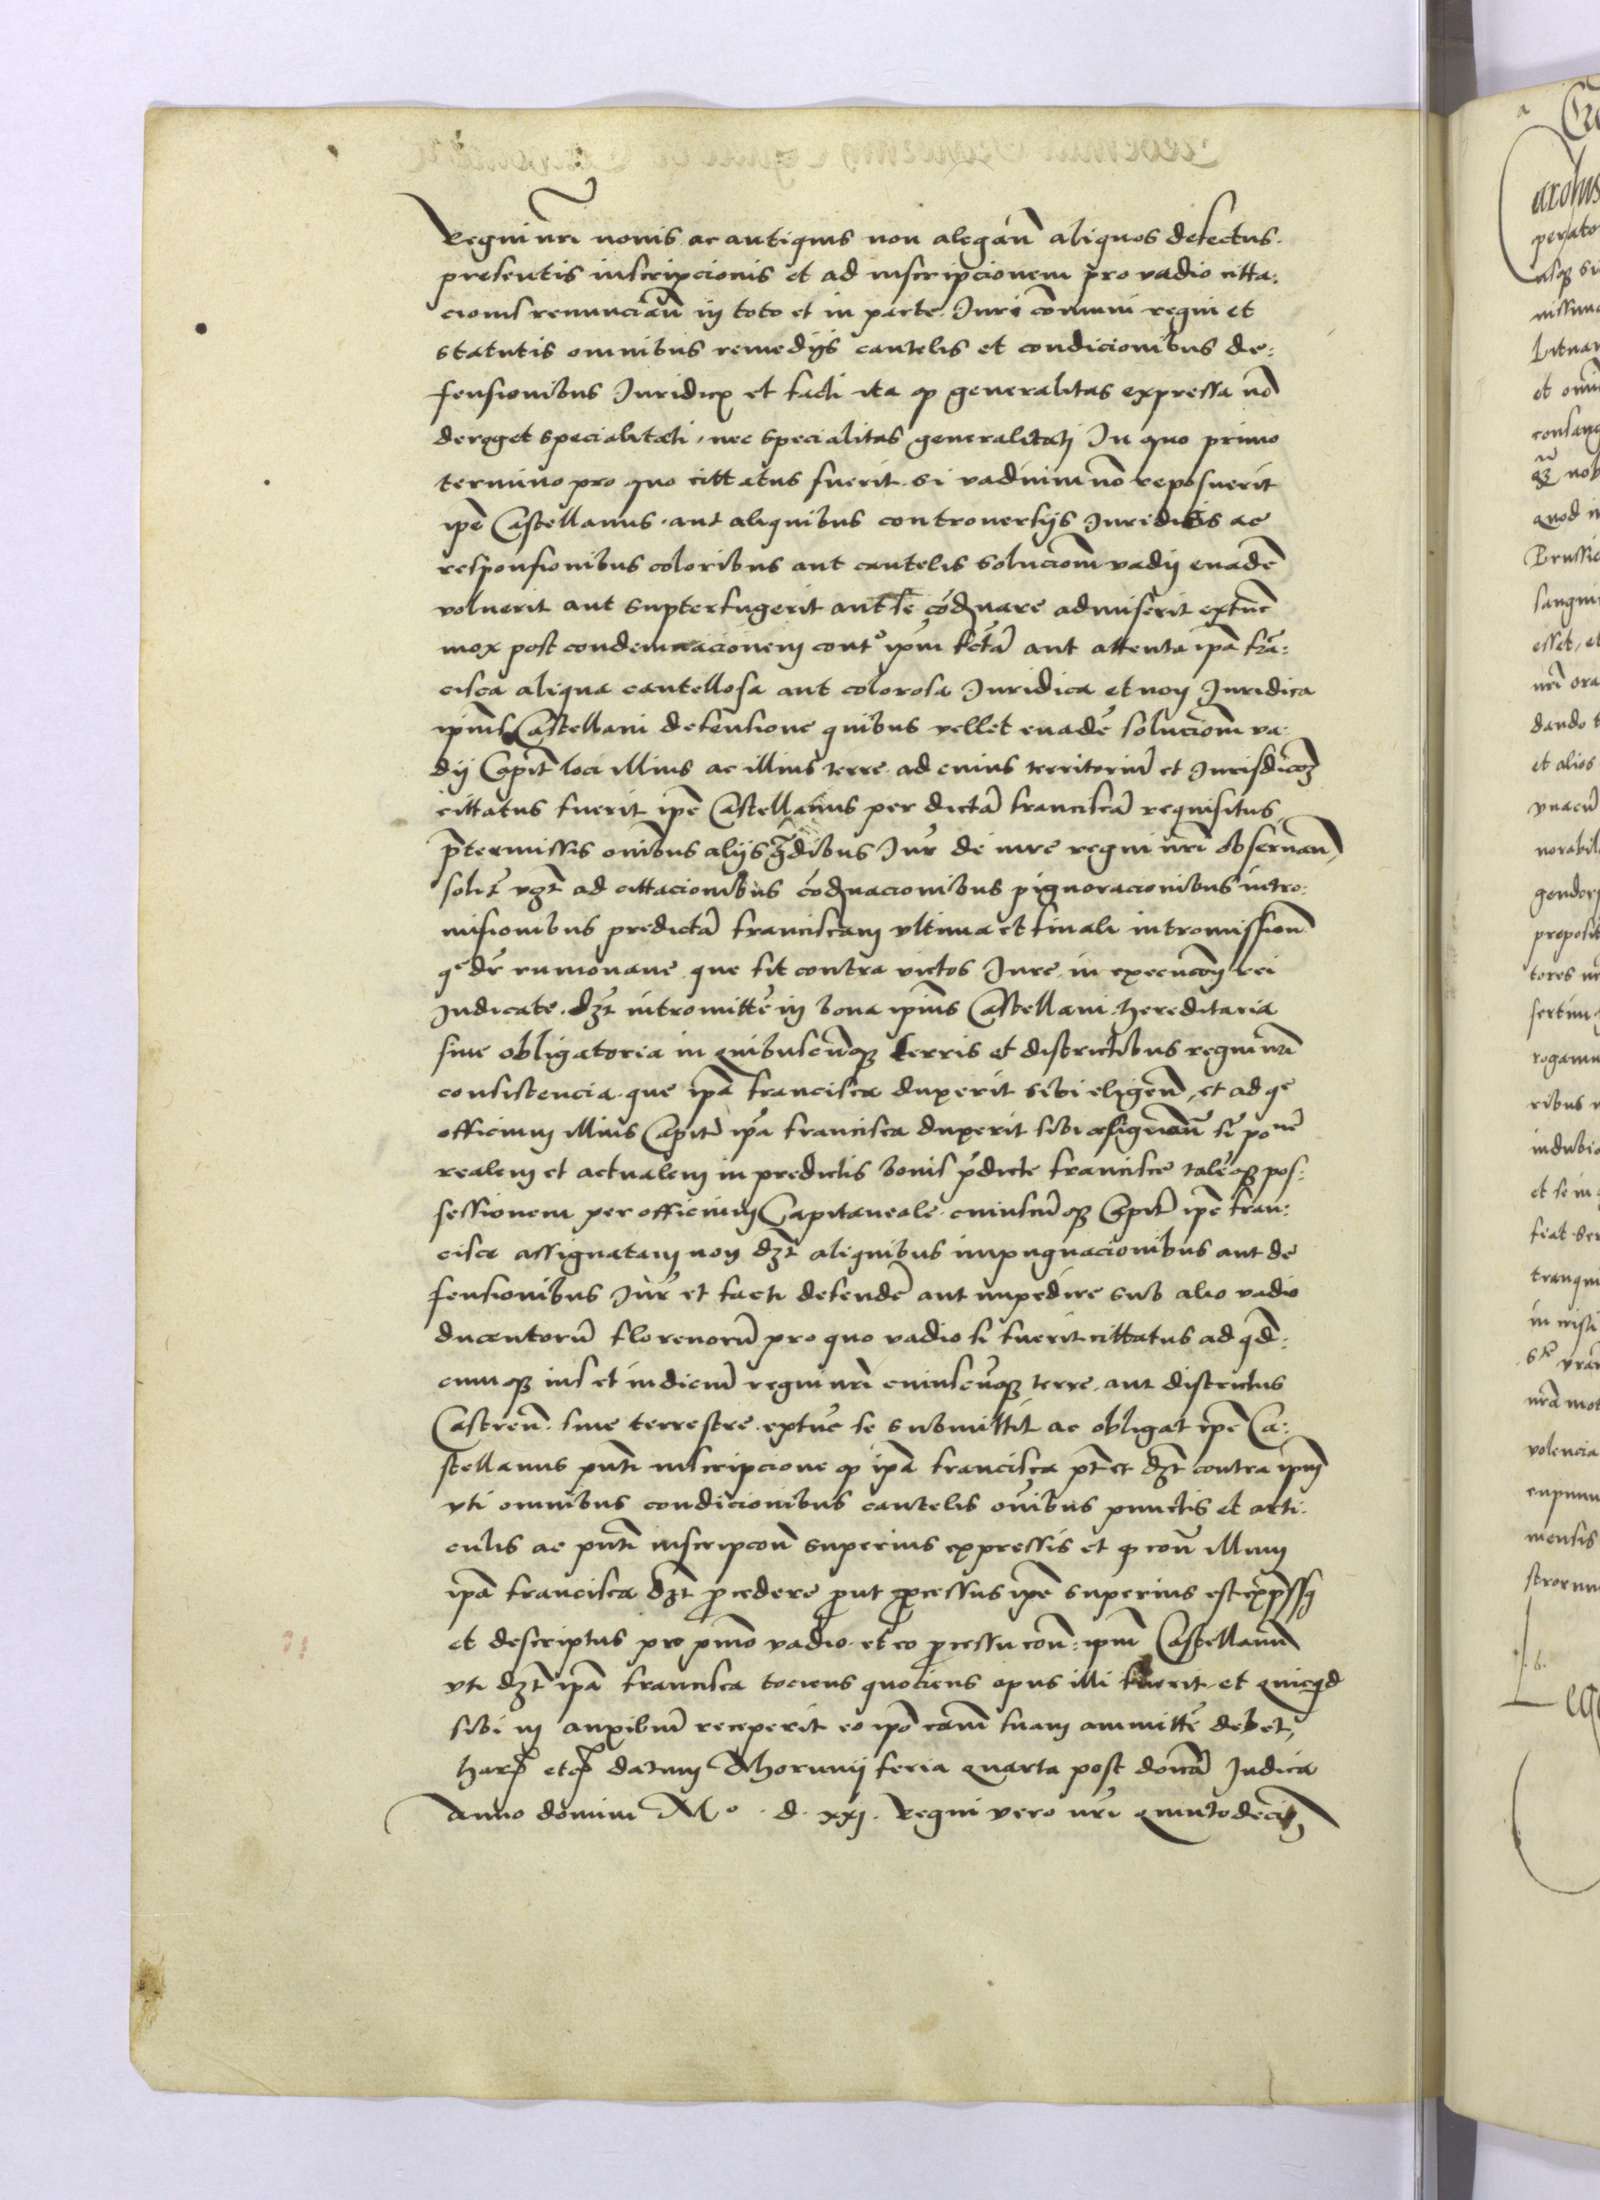 Regni nr̃i nouis ac antiquis non alegañ aliquos defectus
presentis inscripcionis et ad inscripcionem pro vadio citta:
cionis renunciañ in toto et in parte Juri cõmuni regni et
statutis omnibus remedijs cautelis et condicionibus de:
fensionibus Juridicis et facti ita q̃ generalitas expressa nõ
deroget specialitati, nec specialitas generalitati In quo primo
termino pro quo cittatus fuerit si vadium nõ reposuerit
ip̃e Castellanus aut aliquibus controuersijs Juridicis ac
responsionibus coloribus aut cautelis solucionẽ vadij euadẽ
voluerit aut supterfugerit aut se cõdẽnare admiserit extũc
mox post condemnacionem contra ip̃m fctã aut attenta ip̃a frã:
cisca aliqua cautellosa aut colorosa Juridica et non Juridica
ip̃ius Castellani defensione quibus vellet euadẽ solucionẽ va:
dij Capit̃ loci illius ac illius terre ad cuius territoriũ et Jurisdicoẽ
cittatus fuerit ip̃e Castellanus per dictã franciscã requisitus
p̃termissis oñibus alijs gradibus Jur̃ de iure regni nr̃i obseruañ
solit̃ vʒt ad cittacionibus cõdẽnacionibus pignoracionibus intro:
misionibus predictã franciscam vltima et finali intromissioñ
q̃ dr̃ rumouane que fit contra victos Jure in execucoẽ rei
Judicate dʒt intromittẽ in bona ip̃ius Castellani hereditaria
siue obligatoria in quibuscũqʒ terris et districtibus regni nr̃i
consistencia que ip̃a francisca duxerit sibi eligeñ et ad q̃
officium illius Capit̃ ip̃a francisca duxerit sibi assignañ
realem et actualem in predictis bonis p̃dicte francisce talẽqʒ pos:
sessionem per officium Capitaneale cuiuscũqʒ Capit̃ ip̃e fran:
cisce assignatam non dʒt aliquibus impugnacionibus aut de
fensionibus Jur̃ et facti defendẽ aut impedire sub alio vadio
ducentorũ florenorũ pro quo vadio si fuerit cittatus ad qd̃:
cumqʒ ius et iudiciũ regni nr̃i cuiuscũqʒ terre aut districtus
Castreñ siue terrestre extũc se submittit ac obligat ip̃e Ca:
stellanus pñti inscripcione q̃ ip̃a francisca pt̃ et dʒt contra ip̃m
vti omnibus condicionibus cautelis oĩbus punctis et arti:
culis ac pñti inscripcoñ superius expressis et q̃ coñ illum
ip̃a francisca dʒt p̃cedere p̃ut p̃cessus ip̃e superius est exp̃ssus
et descriptus pro p̃mo vadio et eo p̃cessu coñ: ip̃m Castellanũ
vti dʒt ip̃a francisca tociens quociens opus illi fuerit et quicqd
sibi in auxiliũ receperit eo ip̃o cãm suam ammittẽ debet,
harũ etc̃ datum Thorunij feria quarta post domcã Judica
Anno domini Mº. d. xxj. Regni vero nr̃i quintodecimo